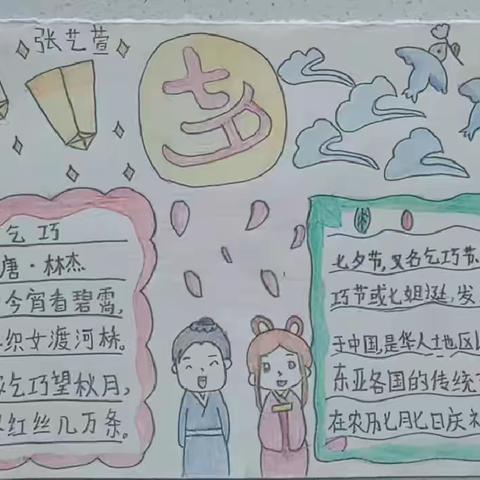 张艺萱
七夕
乞巧
唐·林杰
今宵看碧霄,
织女渡河林。
乞巧望秋月,
红丝几万条。
七夕节,又名乞巧节
巧节或七姐诞,发
于中国,是华人地区
东亚各国的传统
在农历七月七日庆